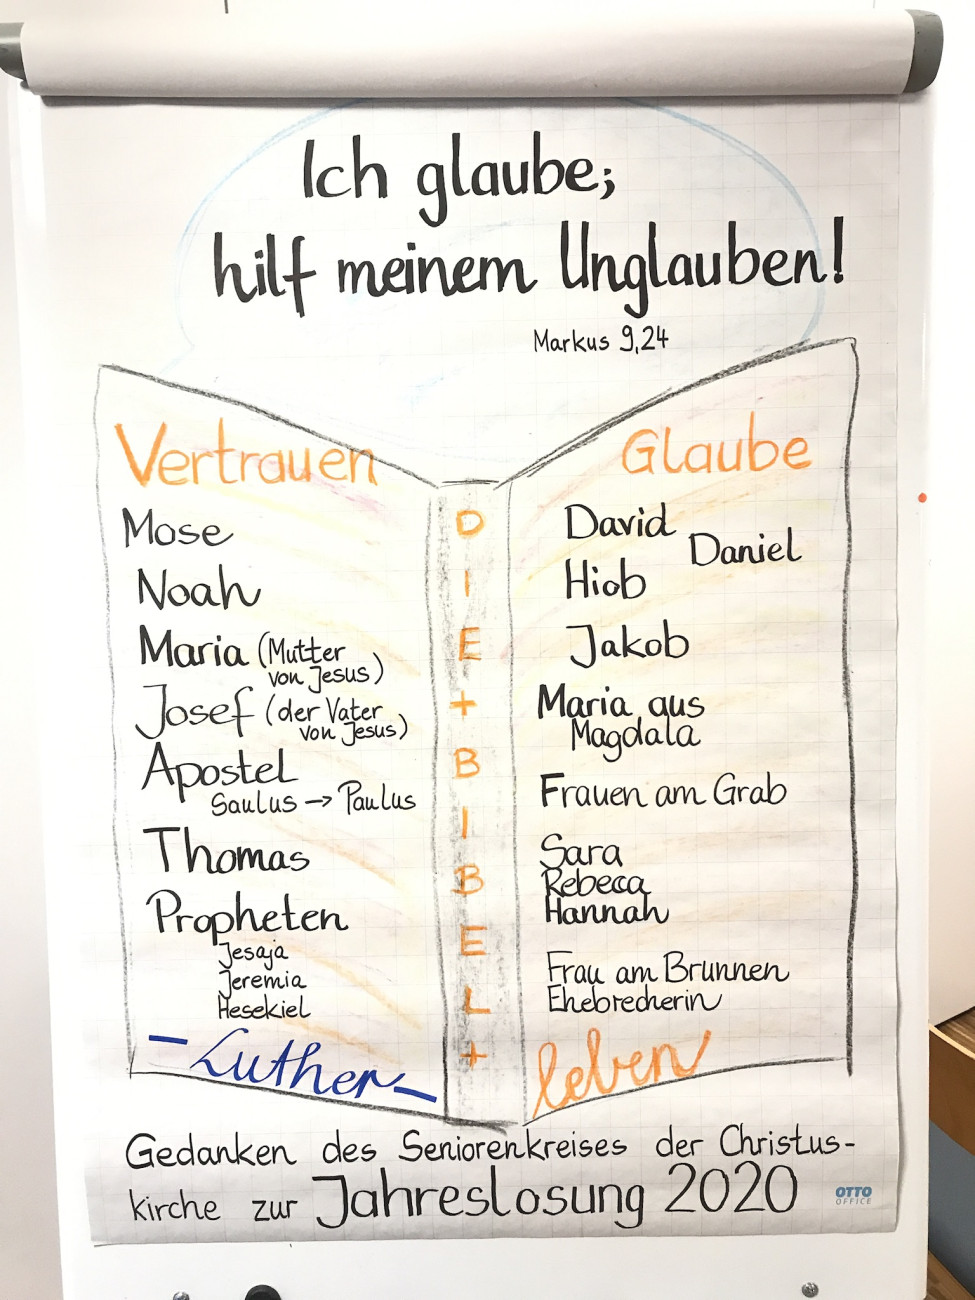 Ich glaube;
hilf meinem Unglauben!
Markus 9,24
Vertrauen
Mose
Noah
Maria (Mutter
von Jesus)
Josef (der Vater
von Jesus)
Apostel
Saulus → Paulus
Thomas
Propheten
Jesaja
Jeremia
Hesekiel
- Luther -
DIE + BIBEL +
Glaube
David
Daniel
Hiob
Jakob
Maria aus
Magdala
Frauen am Grab
Sara
Rebeca
Hannah
Frau am Brunnen
Ehebrecherin
leben
Gedanken des Seniorenkreises der Christus-
kirche zur Jahreslosung 2020
OTTO
OFFICE